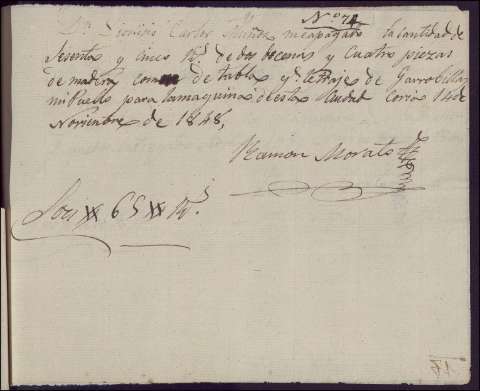 Nº 74
Dn. Dionisio Carlos Muñoz me a pagado la cantidad de
sesenta y cinco Rs. de dos docenas y cuatro piezas
de madera de tabla qe. le traje de Garrobillas
mi Pueblo para la maquina de esta Ciudad Coria 14 de
Noviembre de 1848,
Ramon Morato
Son # 65 # Rs.